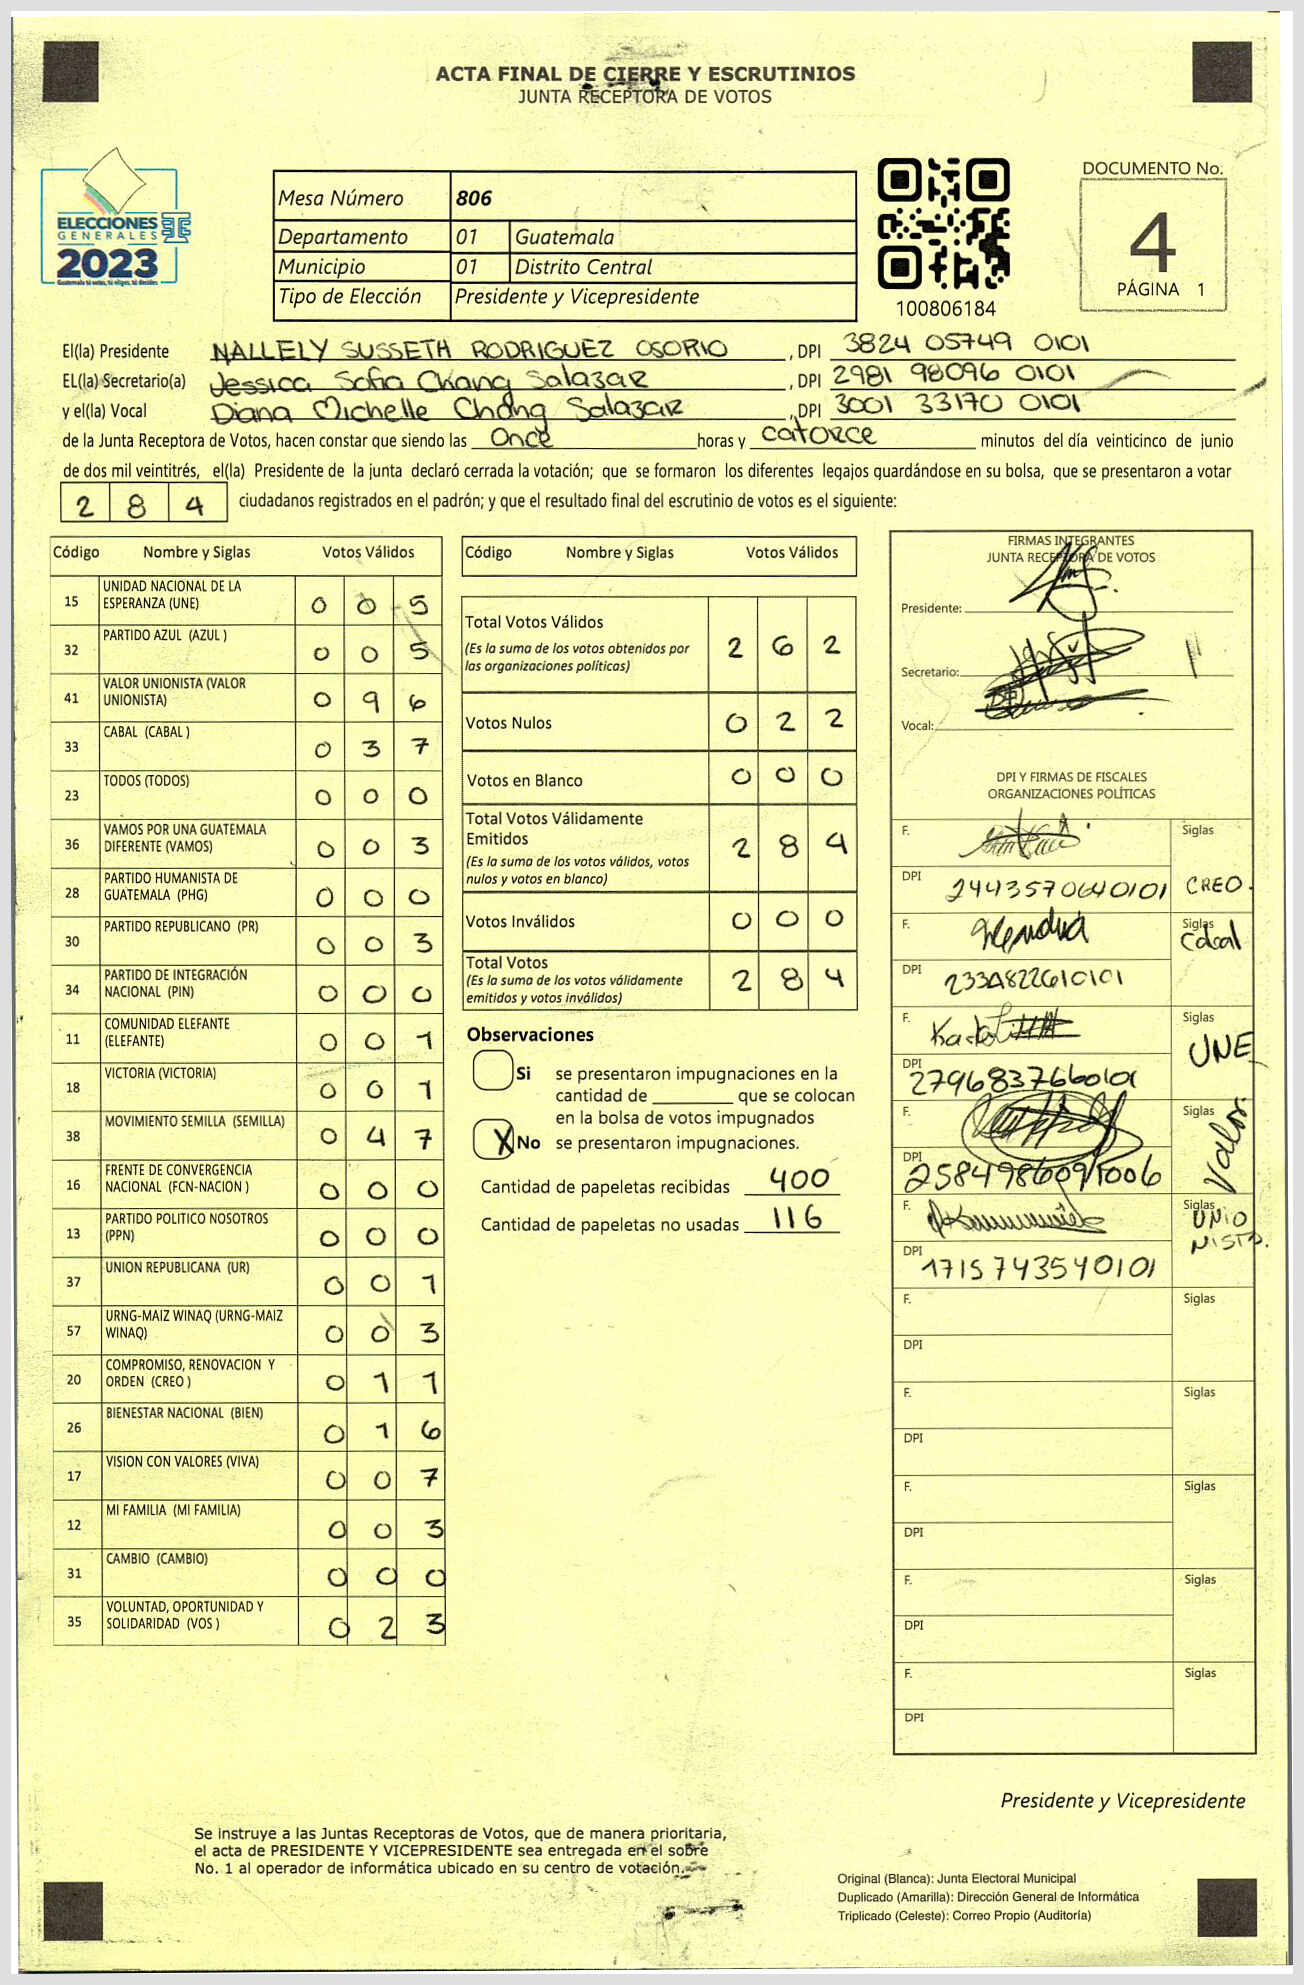 ACTA FINAL DE CIERRE Y ESCRUTINIOS
JUNTA RECEPTORA DE VOTOS
ELECCIONES
GENERALES
2023
Guatemala tú votas, tú eliges, tú decides
Mesa Número 806
Departamento 01 Guatemala
Municipio 01 Distrito Central
Tipo de Elección Presidente y Vicepresidente
100806184
DOCUMENTO No.
4
PÁGINA 1
El(la) Presidente NALLELY SUSSETH RODRIGUEZ OSORIO, DPI 3824 05749 0101
EL(la) Secretario(a) Jessica Sofia Chang Salazar, DPI 2981 98096 0101
y el(la) Vocal Diana Michelle Chang Salazar, DPI 3001 33170 0101
de la Junta Receptora de Votos, hacen constar que siendo las Once horas y catorce minutos del día veinticinco de junio
de dos mil veintitrés, el(la) Presidente de la junta declaró cerrada la votación; que se formaron los diferentes legajos guardándose en su bolsa, que se presentaron a votar
2 8 4 ciudadanos registrados en el padrón; y que el resultado final del escrutinio de votos es el siguiente:
Código Nombre y Siglas Votos Válidos
15 UNIDAD NACIONAL DE LA ESPERANZA (UNE) 0 0 5
32 PARTIDO AZUL (AZUL ) 0 0 5
41 VALOR UNIONISTA (VALOR UNIONISTA) 0 9 6
33 CABAL (CABAL ) 0 3 7
23 TODOS (TODOS) 0 0 0
36 VAMOS POR UNA GUATEMALA DIFERENTE (VAMOS) 0 0 3
28 PARTIDO HUMANISTA DE GUATEMALA (PHG) 0 0 0
30 PARTIDO REPUBLICANO (PR) 0 0 3
34 PARTIDO DE INTEGRACIÓN NACIONAL (PIN) 0 0 0
11 COMUNIDAD ELEFANTE (ELEFANTE) 0 0 1
18 VICTORIA (VICTORIA) 0 0 1
38 MOVIMIENTO SEMILLA (SEMILLA) 0 4 7
16 FRENTE DE CONVERGENCIA NACIONAL (FCN-NACION ) 0 0 0
13 PARTIDO POLITICO NOSOTROS (PPN) 0 0 0
37 UNION REPUBLICANA (UR) 0 0 1
57 URNG-MAIZ WINAQ (URNG-MAIZ WINAQ) 0 0 3
20 COMPROMISO, RENOVACION Y ORDEN (CREO ) 0 1 1
26 BIENESTAR NACIONAL (BIEN) 0 1 6
17 VISION CON VALORES (VIVA) 0 0 7
12 MI FAMILIA (MI FAMILIA) 0 0 3
31 CAMBIO (CAMBIO) 0 0 0
35 VOLUNTAD, OPORTUNIDAD Y SOLIDARIDAD (VOS ) 0 2 3
Código Nombre y Siglas Votos Válidos
Total Votos Válidos 2 6 2
(Es la suma de los votos obtenidos por
las organizaciones políticas)
Votos Nulos 0 2 2
Votos en Blanco 0 0 0
Total Votos Válidamente
Emitidos 2 8 4
(Es la suma de los votos válidos, votos
nulos y votos en blanco)
Votos Inválidos 0 0 0
Total Votos 2 8 4
(Es la suma de los votos válidamente
emitidos y votos inválidos)
Observaciones
Si se presentaron impugnaciones en la
cantidad de ________ que se colocan
en la bolsa de votos impugnados
X No se presentaron impugnaciones.
Cantidad de papeletas recibidas 400
Cantidad de papeletas no usadas 116
FIRMAS INTEGRANTES
JUNTA RECEPTORA DE VOTOS
Presidente:
Secretario:
Vocal:
DPI Y FIRMAS DE FISCALES
ORGANIZACIONES POLÍTICAS
F. Siglas
DPI 2443570640101 CREO.
F. Siglas
Cabal
DPI
F. Siglas
UNE
DPI 2796837660101
F. Siglas
Valor
DPI
F. Siglas
UNIO
NISTA.
DPI 1715743540101
F. Siglas
DPI
F. Siglas
DPI
F. Siglas
DPI
F. Siglas
DPI
F. Siglas
DPI
Presidente y Vicepresidente
Se instruye a las Juntas Receptoras de Votos, que de manera prioritaria,
el acta de PRESIDENTE Y VICEPRESIDENTE sea entregada en el sobre
No. 1 al operador de informática ubicado en su centro de votación.
Original (Blanca): Junta Electoral Municipal
Duplicado (Amarilla): Dirección General de Informática
Triplicado (Celeste): Correo Propio (Auditoría)